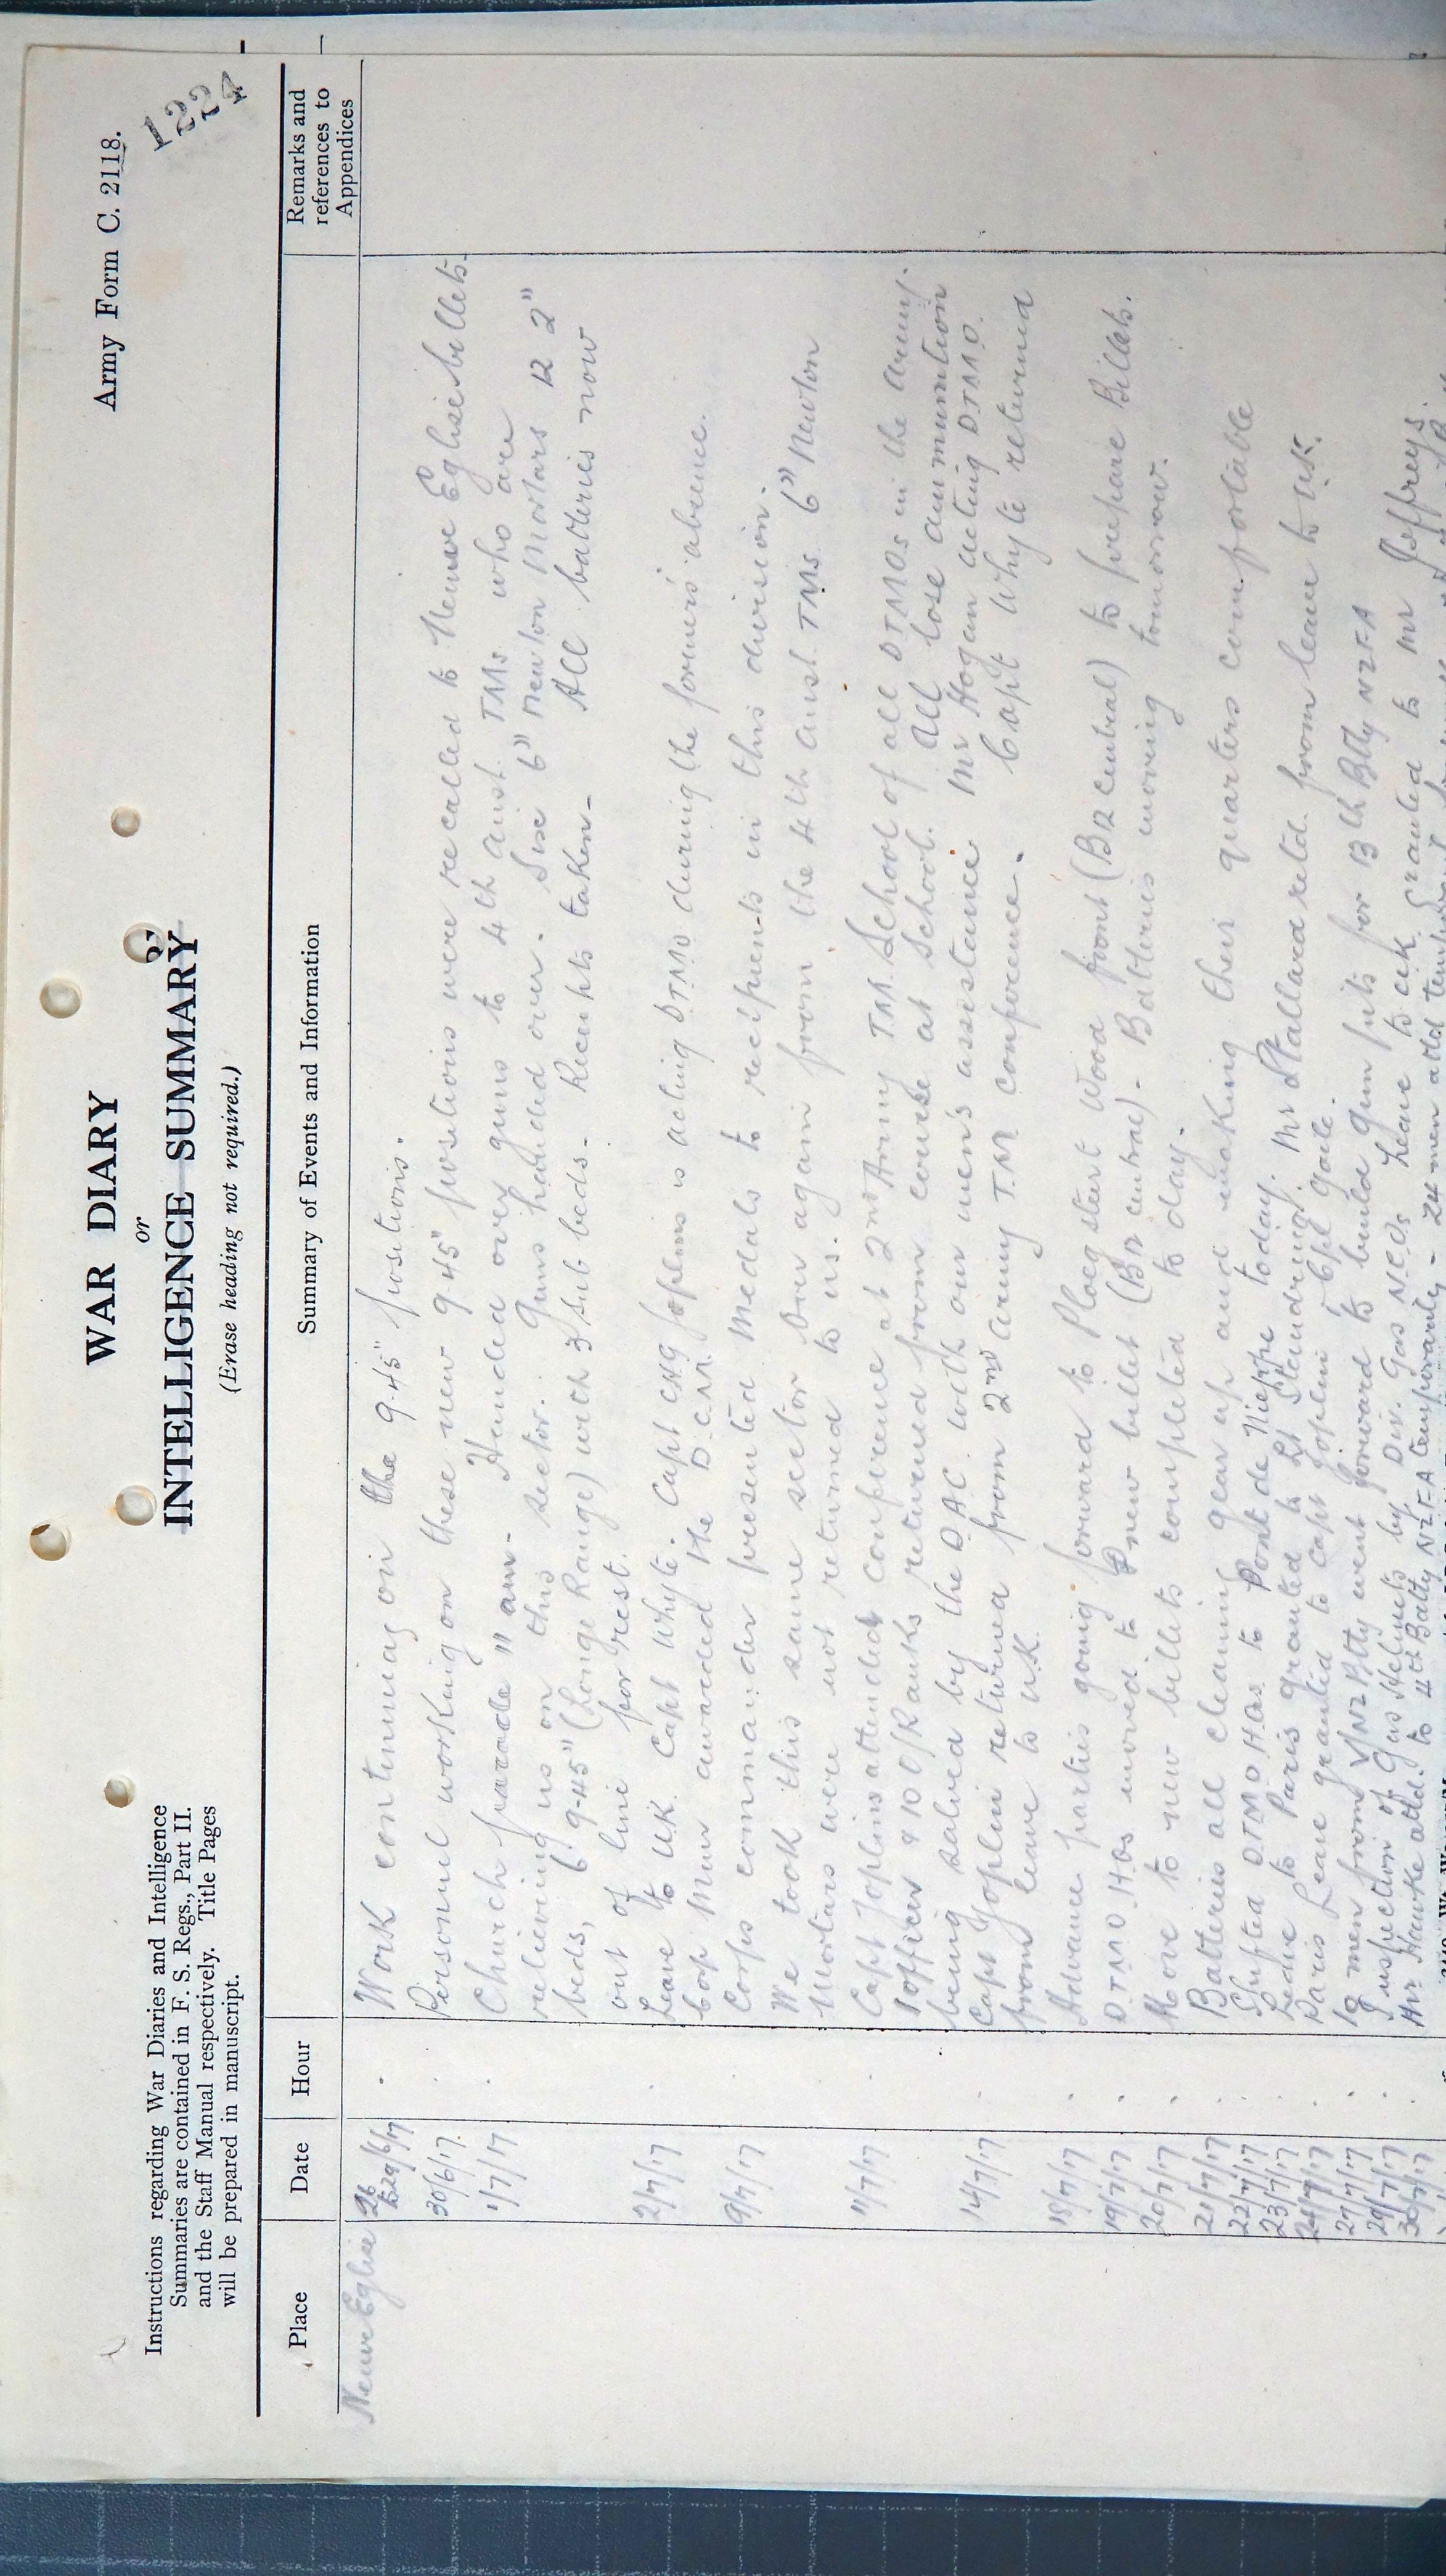 Army Form C. 2118.
1224
WAR DIARY
or
INTELLIGENCE SUMMARY
(Erase heading not required.)
Instructions regarding War Diaries and Intelligence
Summaries are contained in F. S. Regs., Part II.
and the Staff Manual respectively. Title Pages
will be prepared in manuscript.
Place Date Hour Summary of Events and Information Remarks and references to Appendices
Neuve Eglise 26 to 29/6/17 Work continuing on the 9.45" positions.
30/6/17 Personnel working on these new 9.45" positions were recalled to Neuve Eglise billets.
1/7/17 Church parade 11 am - Handed over guns to 4th Aust. TMs who are
relieving us on this sector. Guns handed over. Six 6" Newton Mortars 12 2"
beds, 6 9.45" (Longe Range) with 3 sub beds. Receipts taken - All batteries now
out of line for rest.
2/7/17 Leave to UK Capt Whyte. Capt CHG Joplin is acting DTMO during the former's absence.
awarded the D.C.M.
9/7/17 Corps commander presented Medals to recipients in this division.
We took this same sector over again from the 4th Aust. TMs 6" Newton
Mortars were not returned to us.
11/7/17 Capt Joplin attended conference at 2nd Army TM School of all DTMOs in the army.
1 officer 20 O/Ranks returned from course at School. All lose ammunition
being salved by the DAC with our men's assistance Mr Hogan acting DTMO.
14/7/17 Capt Joplin returned from 2nd Army T.M conference. Capt Whyte returned
from leave to U.K.
18/7/17 Advance parties going forward to Ploegsteert Wood front (B12 central) to prepare Billets.
19/7/17 D.T.M.O. HQs moved to new billet (B12 central) - Batteries moving tomorrow.
20/7/17 Move to new billets completed to day.
21/7/17 Batteries all cleaning gear up and making their quarters comfortable
22/7/17 Shifted DTMO HQs to Pont de Nieppe today.
23/7/17 Leave to Paris granted to Lt Mr Stallard retd. from leave to UK.
24/7/17 Paris Leave granted to Capt Joplin
27/7/17 19 men from Y/NZ Btty went forward to build gun pits for 13th Btty NZFA
29/7/17 Inspection of Gas Helmets by Div. Gas N.C.Os Leave to UK granted to Mr Jeffreys.
30/7/17 Mr Hawke attd. to 4th Batty NZFA temporarily - 24 men attd